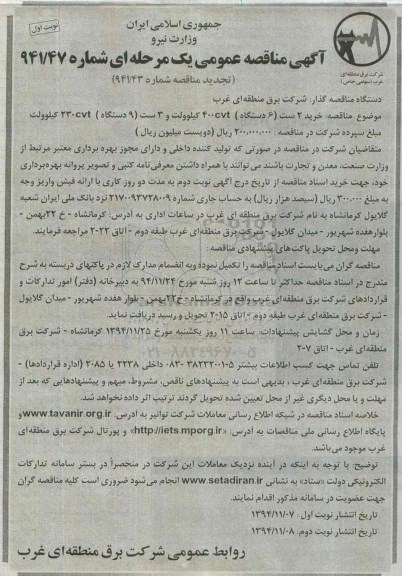 جمهوری اسلامی ایران
وزارت نیرو
نوبت اول
شرکت برق منطقه‌ای
غرب (سهامی خاص)
آگهی مناقصه عمومی یک مرحله ای شماره ۹۴۱/۴۷
(تجدید مناقصه شماره ۹۴۱/۴۳)
دستگاه مناقصه گذار: شرکت برق منطقه‌ای غرب
موضوع مناقصه: خرید ۲ ست (۶ دستگاه) ۴۰۰cvt کیلوولت و ۳ ست (۹ دستگاه) ۲۳۰cvt کیلوولت
مبلغ سپرده شرکت در مناقصه: ۲۰۰,۰۰۰,۰۰۰ ریال (دویست میلیون ریال)
متقاضیان شرکت در مناقصه در صورتی که تولید کننده داخلی و دارای مجوز بهره برداری معتبر مرتبط از
وزارت صنعت، معدن و تجارت باشند می توانند با همراه داشتن معرفی‌نامه کتبی و تصویر پروانه بهره‌برداری
خود، جهت خرید اسناد مناقصه از تاریخ درج آگهی نوبت دوم به مدت دو روز کاری با ارائه فیش واریز وجه
به مبلغ ۳۰۰,۰۰۰ ریال (سیصد هزار ریال) به حساب جاری شماره ۲۱۷۰۰۹۳۷۳۸۰۰۹ نزد بانک ملی ایران شعبه
گلایول کرمانشاه به نام شرکت برق منطقه ای غرب در ساعات اداری به آدرس: کرمانشاه - خ ۲۲بهمن -
بلوارهفده شهریور - میدان گلایول - شرکت برق منطقه‌ای غرب طبقه دوم - اتاق ۲۰۲۲ مراجعه فرمایند.
مهلت ومحل تحویل پاکت‌های پیشنهادی مناقصه:
مناقصه گران می‌بایست اسناد مناقصه را تکمیل نموده وبه انضمام مدارک لازم در پاکتهای دربسته به شرح
مندرج در اسناد مناقصه حداکثر تا ساعت ۱۲ روز شنبه مورخ ۹۴/۱۱/۲۴ به دبیرخانه (دفتر) امور تدارکات و
قراردادهای شرکت برق منطقه‌ای غرب واقع در کرمانشاه - خ۲۲بهمن - بلوار هفده شهریور - میدان گلایول
- شرکت برق منطقه‌ای غرب طبقه دوم - اتاق ۲۰۱۵ تحویل و رسید دریافت نماید.
زمان و محل گشایش پیشنهادات: ساعت ۱۱ روز یکشنبه مورخ ۱۳۹۴/۱۱/۲۵ کرمانشاه - شرکت برق
منطقه‌ای غرب - اتاق ۲۰۷
تلفن تماس جهت کسب اطلاعات بیشتر ۵-۳۸۲۲۲۰۰۱ -۰۸۳ داخلی ۲۲۳۸ یا ۲۰۸۵ (اداره قراردادها) -
شرکت برق منطقه‌ای غرب، بدیهی است به پیشنهادهای ناقص، مشروط، مبهم و پیشنهادهایی که بعد از
مهلت و یا محل دیگری غیر از محل تعیین شده تحویل گردند ترتیب اثر داده نخواهد شد.
خلاصه اسناد مناقصه در شبکه اطلاع رسانی معاملات شرکت توانیر به آدرس: www.tavanir.org.ir و
پایگاه اطلاع رسانی ملی مناقصات به آدرس: «http://iets.mporg.ir» و پورتال شرکت برق منطقه‌ای
غرب موجود می‌باشد.
توضیح: با توجه به اینکه در آینده نزدیک معاملات این شرکت در منحصراً در بستر سامانه تدارکات
الکترونیکی دولت «ستاد» به نشانی www.setadiran.ir انجام می‌شود ضروری است کلیه مناقصه گران
جهت عضویت در سامانه مذکور اقدام نمایند.
تاریخ انتشار نوبت اول: ۱۳۹۴/۱۱/۰۷
تاریخ انتشار نوبت دوم: ۱۳۹۴/۱۱/۰۸
روابط عمومی شرکت برق منطقه‌ای غرب